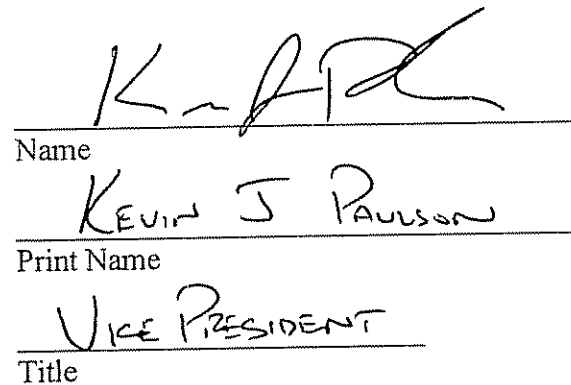 Name
KEVIN J PAULSON
Print Name
VICE PRESIDENT
Title